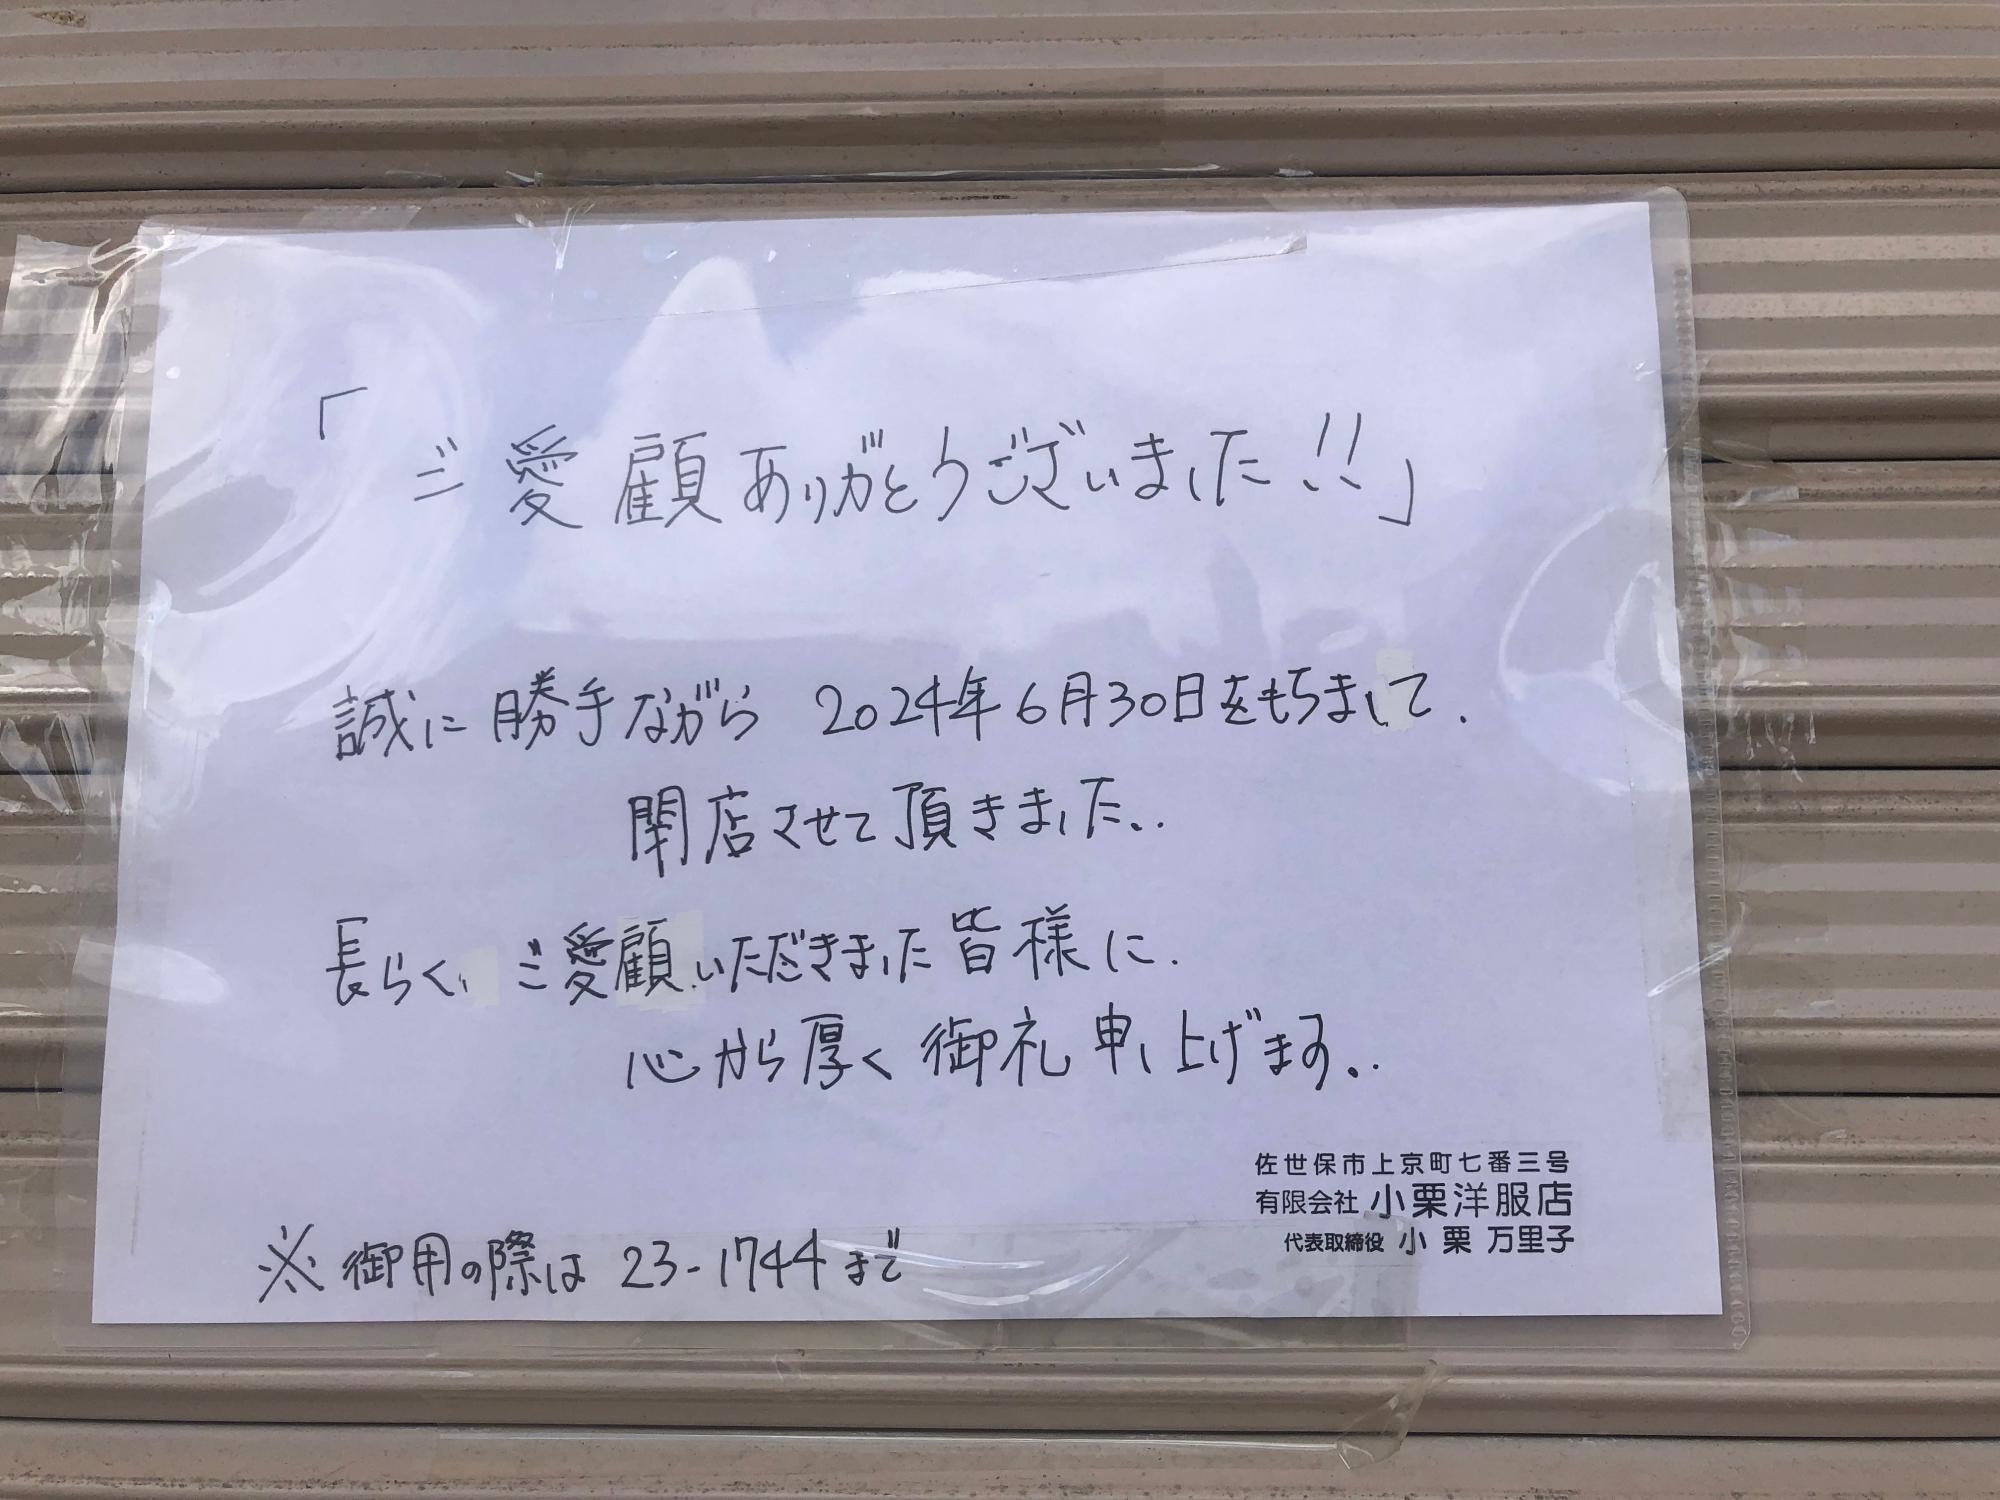 「ご愛顧ありがとうございました!!」
誠に勝手ながら 2024年6月30日をもちまして、
閉店させて頂きました。
長らく、ご愛顧いただきました皆様に、
心から厚く御礼申し上げます。
佐世保市上京町七番三号
有限会社 小栗洋服店
代表取締役 小栗 万里子
※御用の際は 23-1744まで